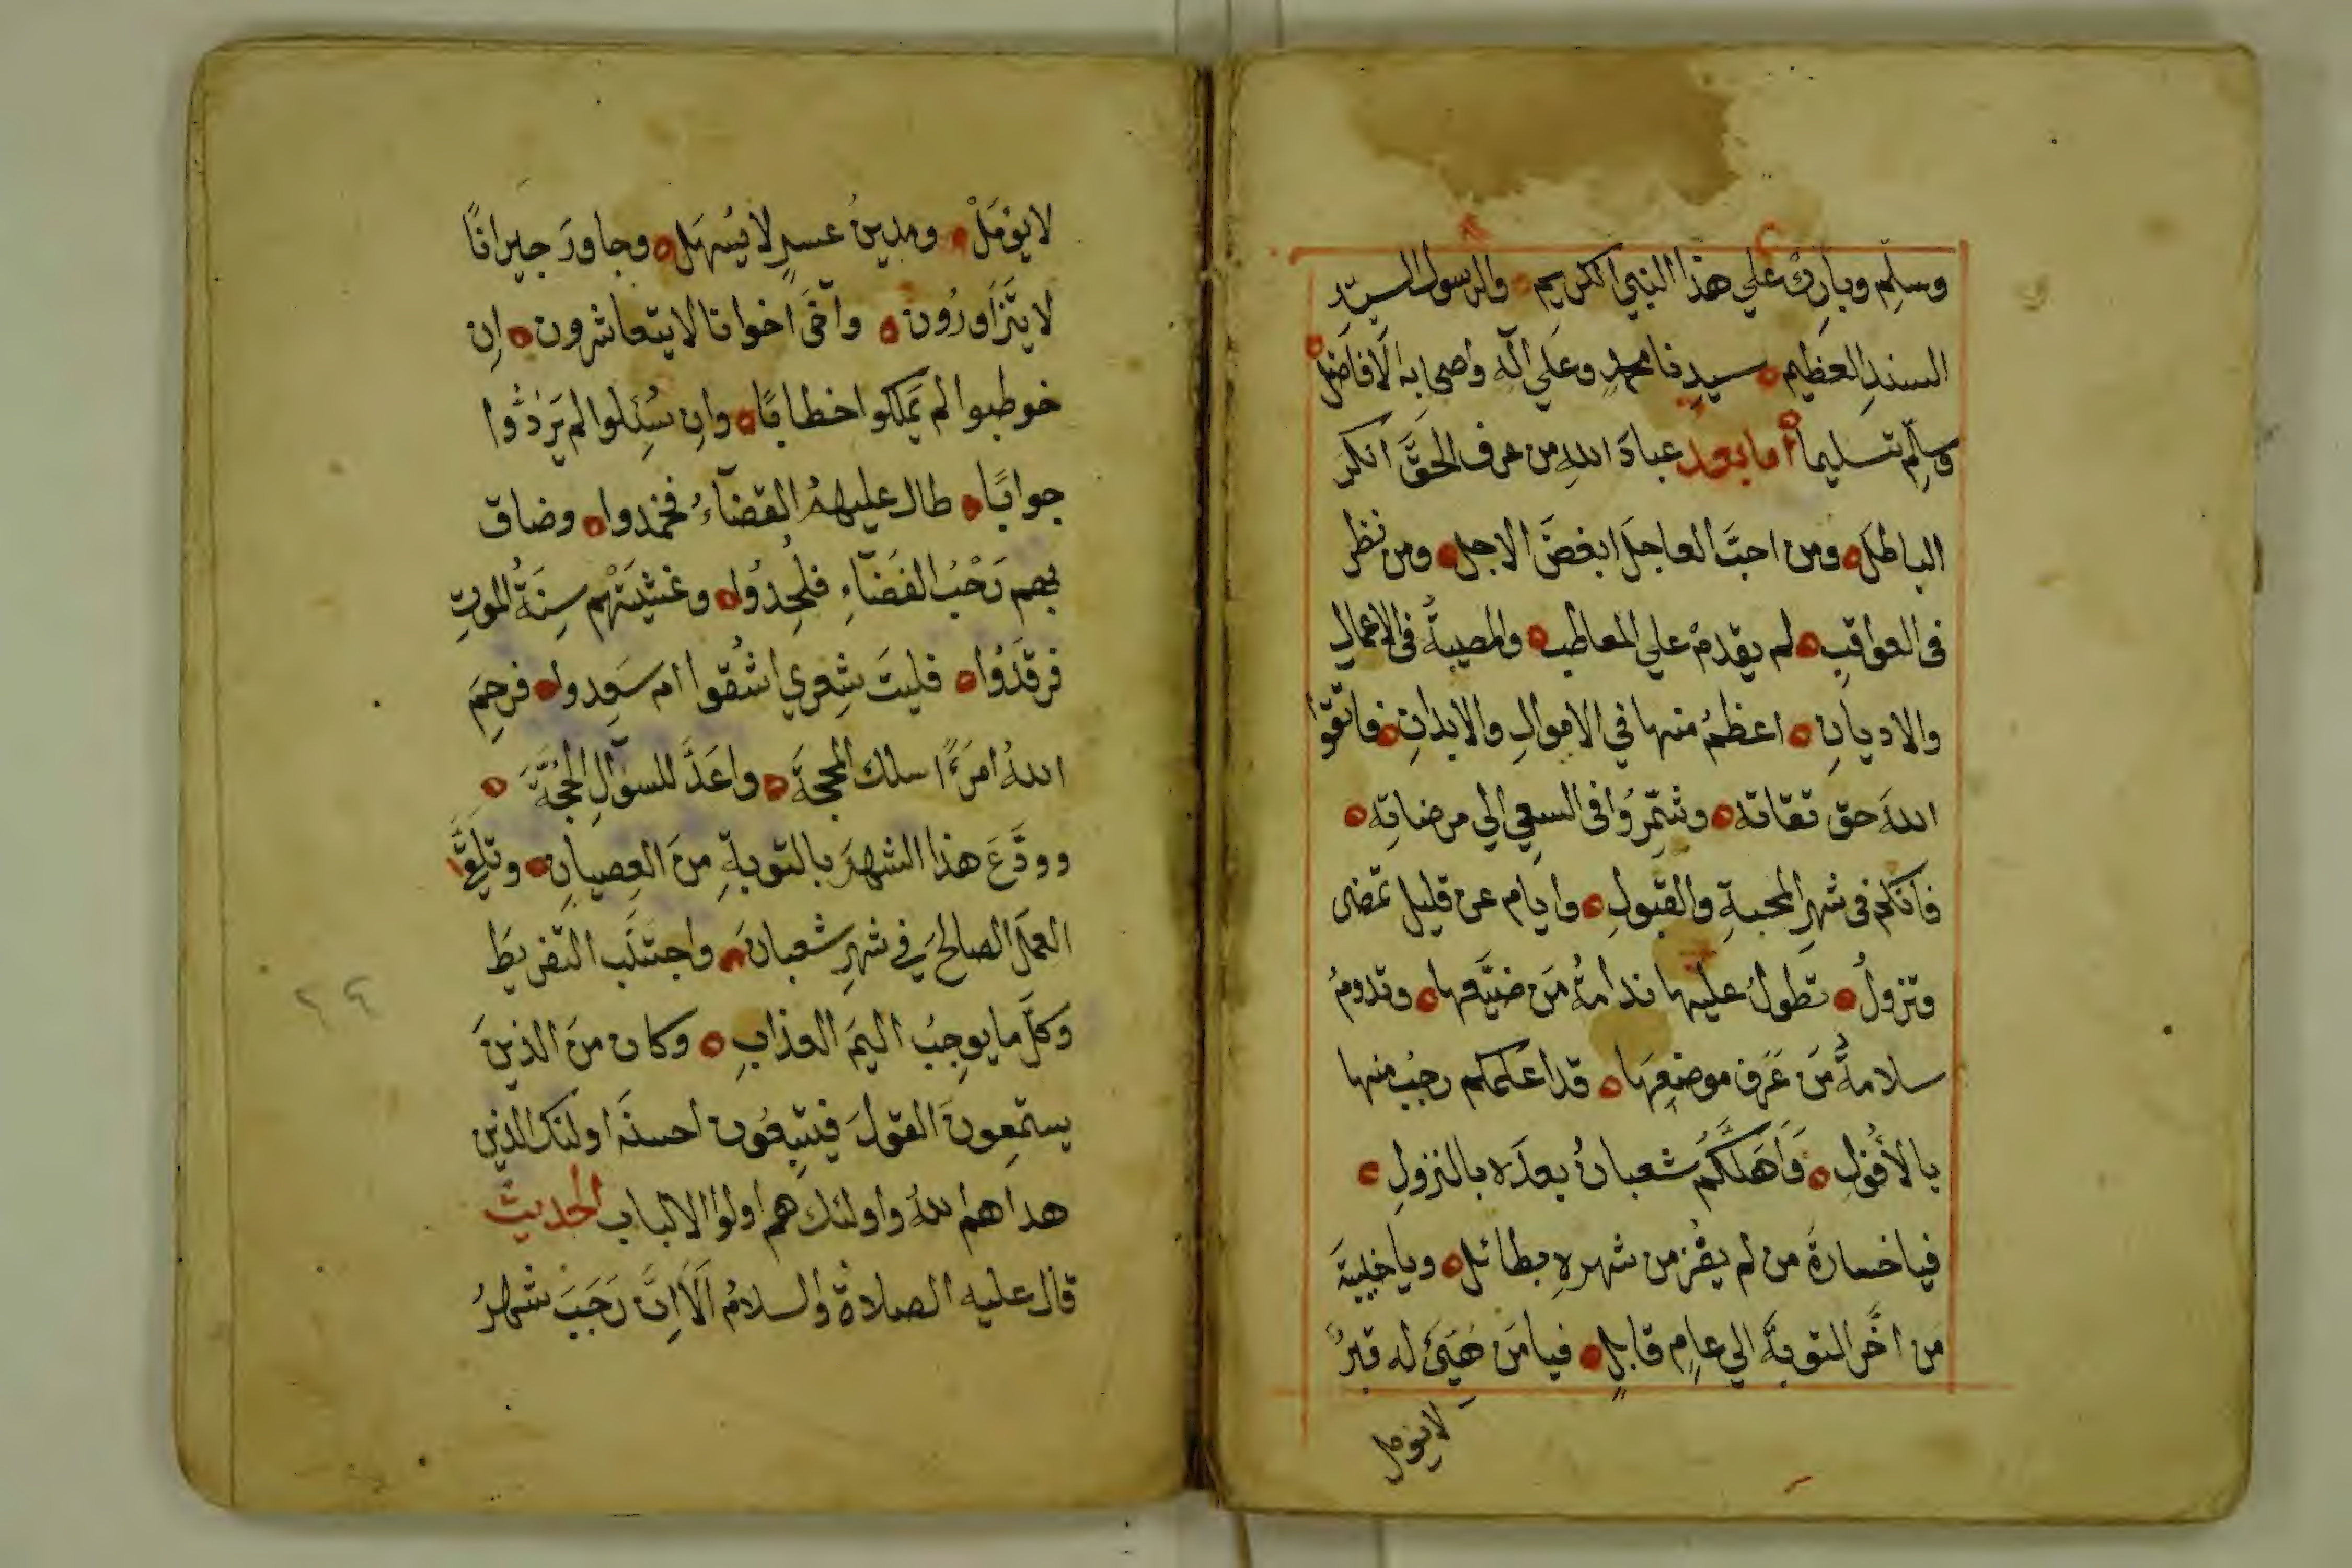 وسلم وبارك علي هذا النبي الكريم والرسول السيد
السند العظيم سيدنا محمد وعلي اله واصحابه الافاضل
وسلم تسليما أما بعد عباد الله من عرف الحق انكر
الباطل ومن احب العاجل ابغض الاجل ومن نظر
في العواقب لم يقدم علي المعاطب والمصيبة في الاعمال
والاديان اعظم منها في الاموال والابدان فاتقوا
الله حق تقاته وشمروا في السعي الي مرضاته
فانكم في شهر المحبة والقبول وايام عن قليل تمضى
وتزول تطول عليها ندامة من ضيعها وتدوم
سلامة من عرف موضعها قد اعلمكم رجب منها
بالأفول وَاَهلَّكم شعبان بعده بالنزول
فيا خسارة من لم يفز من شهره بطائل ويا خيبة
من اخّر التوبة الي عام قابل فيا من هيئ له قبر
لايومل
لا يؤمل ومدين عسر لا يسهل وجاور جيرانا
لا يتزاورون وآخى اخوانا لا يتعاشرون إن
خوطبوا لم يملكوا خطابا وان سئلوا لم يردوا
جوابا طال عليهم القضآء فخمدوا وضاق
بهم رحب الفضآء فلحدوا وغشيتهم سنة الموت
فرقدوا فليت شعري اشقوا ام سعدوا فرحم
الله امرءًا سلك المحجة واعد للسؤال الحجة
وودع هذا الشهر بالتوبة من العصيان وتلقى
العمل الصالح في شهر شعبان واجتنب التفريط
وكل ما يوجب اليم العذاب وكان من الذين
يستمعون القول فيتبعون احسنه اولئك الذين
هداهم الله واولئك هم اولوا الالباب الحديث
قال عليه الصلاة والسلام الا ان رجب شهر